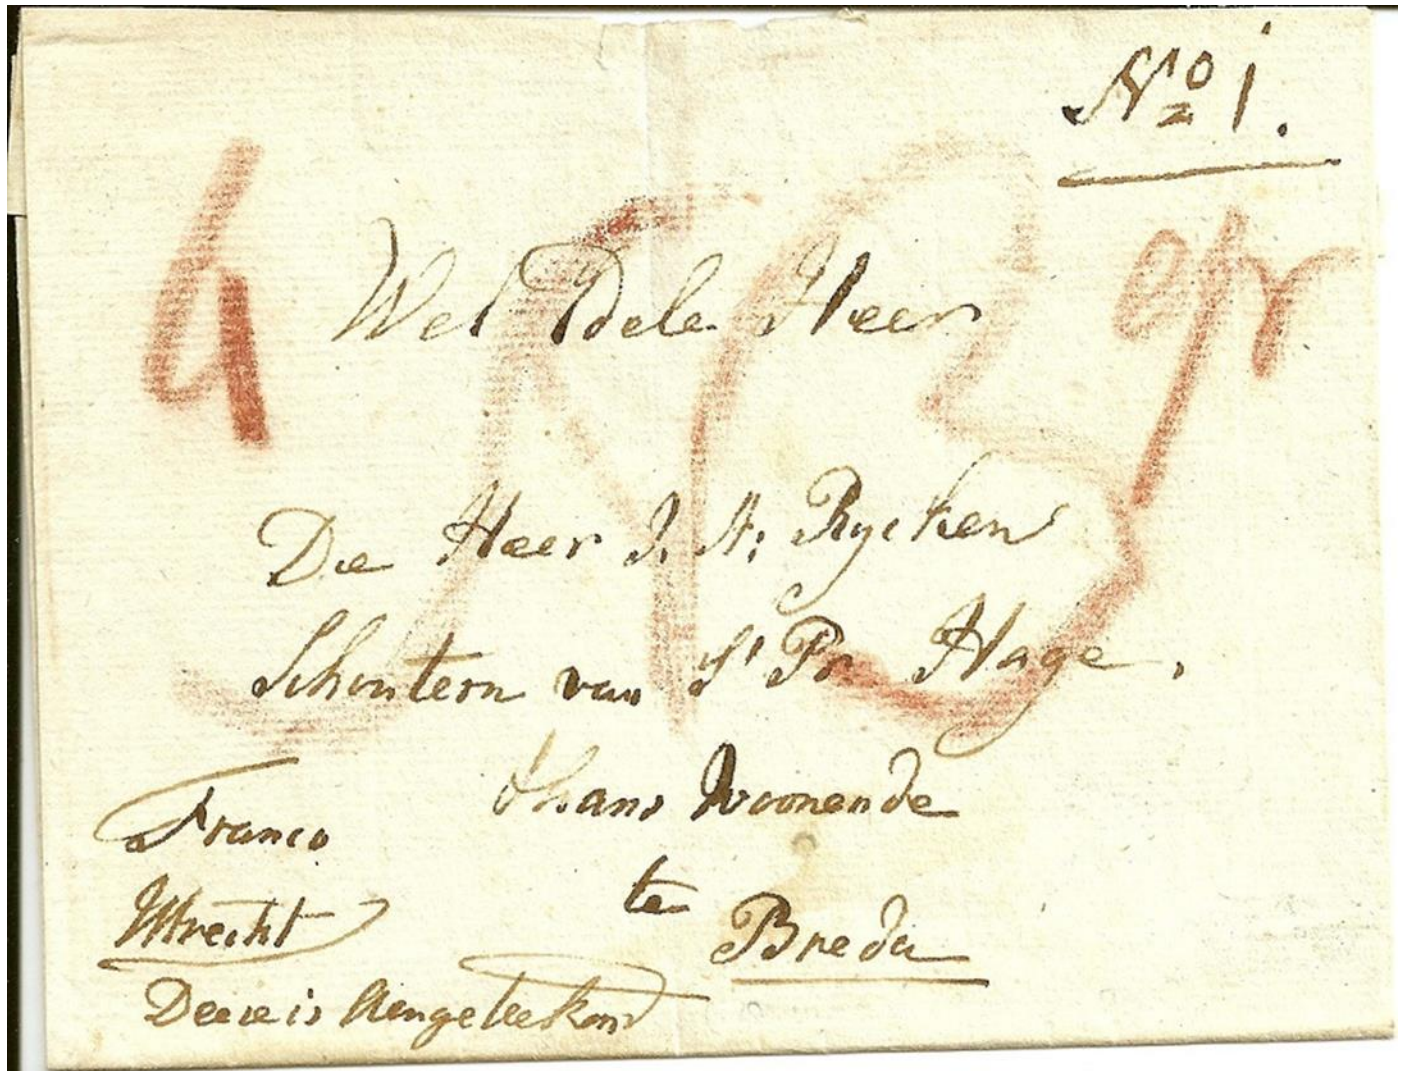 No 1.
Wel Edele Heer
De Heer J. A: Rycken
Schoutern van St Pr Hage,
thans Woonende
te
Breda
Franco
Utrecht
Deese is Aengeteekend